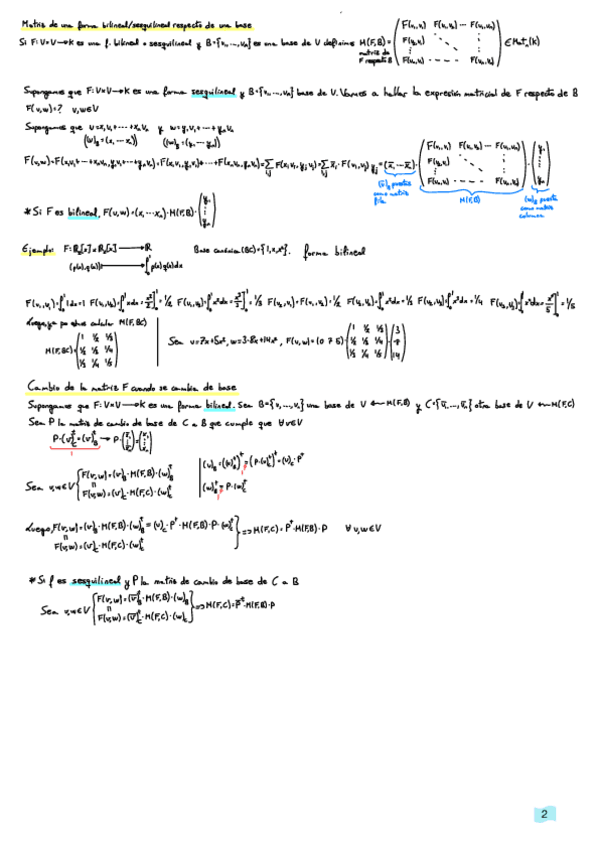 Matriz de una forma bilineal/sesquilineal respecto de una base
Si F: V×V→K es una f. bilineal o sesquilineal y B={v₁,...,vₙ} es una base de V definimos M(F,B) = ( F(v₁,v₁) F(v₁,v₂) ... F(v₁,vₙ) ; F(v₂,v₁) ; F(vₙ,v₁) ... F(vₙ,vₙ) ) ∈ Matₙ(K)
matriz de F respecto B
Supongamos que F: V×V→K es una forma sesquilineal y B={v₁,...,vₙ} base de V. Vamos a hallar la expresión matricial de F respecto de B
F(v,w)=? v,w∈V
Supongamos que v=x₁v₁+...+xₙvₙ y w=y₁v₁+...+yₙvₙ
((v)_B=(x₁...xₙ)) ((w)_B=(y₁...yₙ))
F(v,w)=F(x₁v₁+...+xₙvₙ,y₁v₁+...+yₙvₙ)=F(x₁v₁,y₁v₁)+...+F(xₙvₙ,yₙvₙ)=∑F(xᵢvᵢ,yⱼvⱼ)=∑x̄ᵢ·F(vᵢ,vⱼ)yⱼ=(x̄₁...x̄ₙ)·( F(v₁,v₁) F(v₁,v₂) ... F(v₁,vₙ) ; F(v₂,v₁) ; F(vₙ,v₁) ... F(vₙ,vₙ) )·( y₁ ⋮ yₙ )
(v̄)_B puesta como matriz fila
M(F,B)
(w)_B puesta como matriz columna
*Si F es bilineal, F(v,w)=(x₁...xₙ)·M(F,B)·( y₁ ⋮ yₙ )
Ejemplo: F: ℝ₂[x]×ℝ₂[x]→ℝ Base canónica (BC)={1,x,x²}. forma bilineal
(p(x),q(x))↦∫₀¹p(x)q(x)dx
F(v₁,v₁)=∫₀¹1dx=1 F(v₁,v₂)=∫₀¹xdx=x²/2]₀¹=1/2 F(v₁,v₃)=∫₀¹x²dx=x³/3]₀¹=1/3 F(v₂,v₁)=F(v₁,v₂)=1/2 F(v₂,v₂)=∫₀¹x²dx=1/3 F(v₂,v₃)=∫₀¹x³dx=1/4 F(v₃,v₃)=∫₀¹x⁴dx=x⁵/5]₀¹=1/5
Luego, ya podemos calcular M(F,BC)
M(F,BC)=( 1 1/2 1/3 ; 1/2 1/3 1/4 ; 1/3 1/4 1/5 )
Sean v=7x+5x², w=3-8x+14x², F(v,w)=(0 7 5)·( 1 1/2 1/3 ; 1/2 1/3 1/4 ; 1/3 1/4 1/5 )·( 3 ; -8 ; 14 )
Cambio de la matriz F cuando se cambia de base
Supongamos que F: V×V→K es una forma bilineal. Sean B={v₁,...,vₙ} una base de V ← M(F,B) y C={v̄₁,...,v̄ₙ} otra base de V ← M(F,C)
Sea P la matriz de cambio de base de C a B que cumple que ∀v∈V
P·(v)ᵗ_C=(v)ᵗ_B
Sean v,w∈V { F(v,w)=(v)_B·M(F,B)·(w)ᵗ_B
F(v,w)=(v)_C·M(F,C)·(w)ᵗ_C
(v)_B=((v)ᵗ_B)ᵗ=(P·(v)ᵗ_C)ᵗ=(v)_C·Pᵗ
(w)ᵗ_B=P·(w)ᵗ_C
Luego, F(v,w)=(v)_B·M(F,B)·(w)ᵗ_B=(v)_C·Pᵗ·M(F,B)·P·(w)ᵗ_C
F(v,w)=(v)_C·M(F,C)·(w)ᵗ_C } ⇒ M(F,C)=Pᵗ·M(F,B)·P ∀v,w∈V
*Si f es sesquilineal y P la matriz de cambio de base de C a B
Sean v,w∈V { F(v,w)=(v̄)_B·M(F,B)·(w)_B
F(v,w)=(v̄)_C·M(F,C)·(w)_C } ⇒ M(F,C)=P̄ᵗ·M(F,B)·P
2